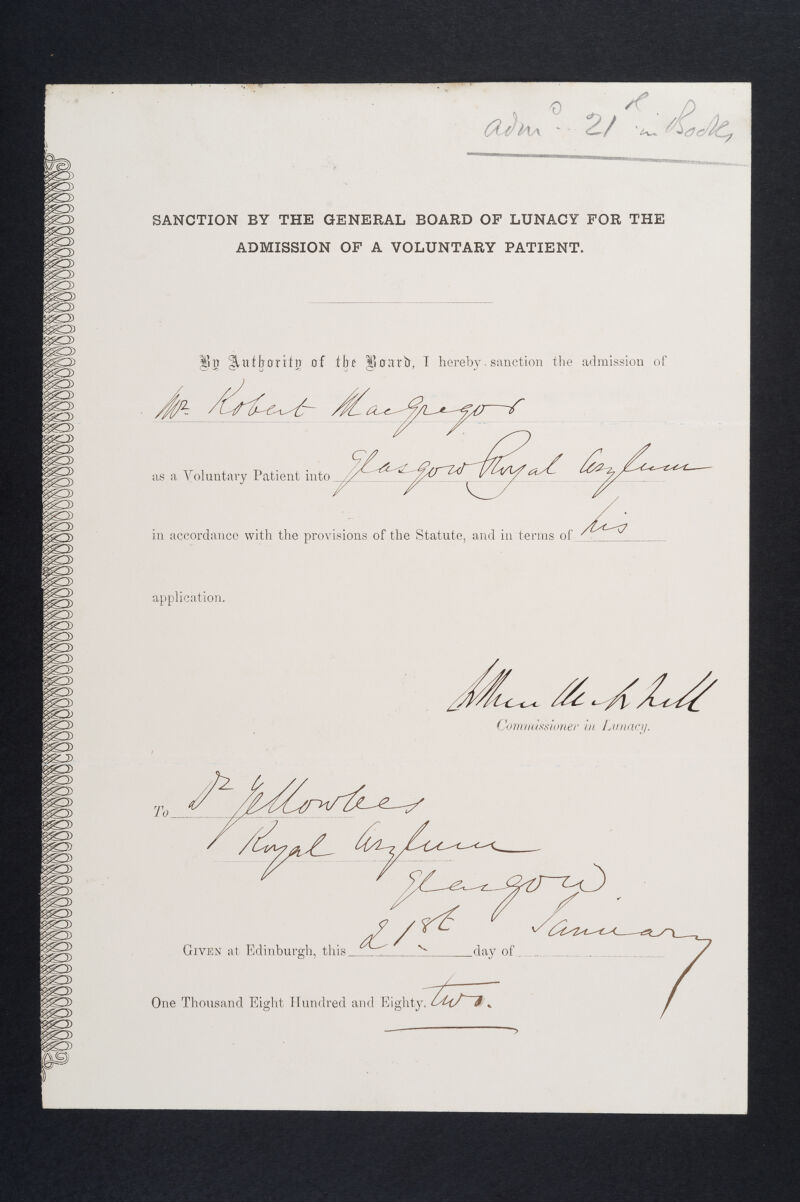 admd. 21st in Books
SANCTION BY THE GENERAL BOARD OF LUNACY FOR THE
ADMISSION OF A VOLUNTARY PATIENT.
By Authority of the Board, I hereby sanction the admission of
Mr. Robert MacGregor
as a Voluntary Patient into Glasgow Royal Asylum
in accordance with the provisions of the Statute, and in terms of his
application.
Arthur Mitchell
Commissioner in Lunacy.
To Dr Yellowlees
Royal Asylum
Glasgow.
GIVEN at Edinburgh, this 21st day of January
One Thousand Eight Hundred and Eighty. two.